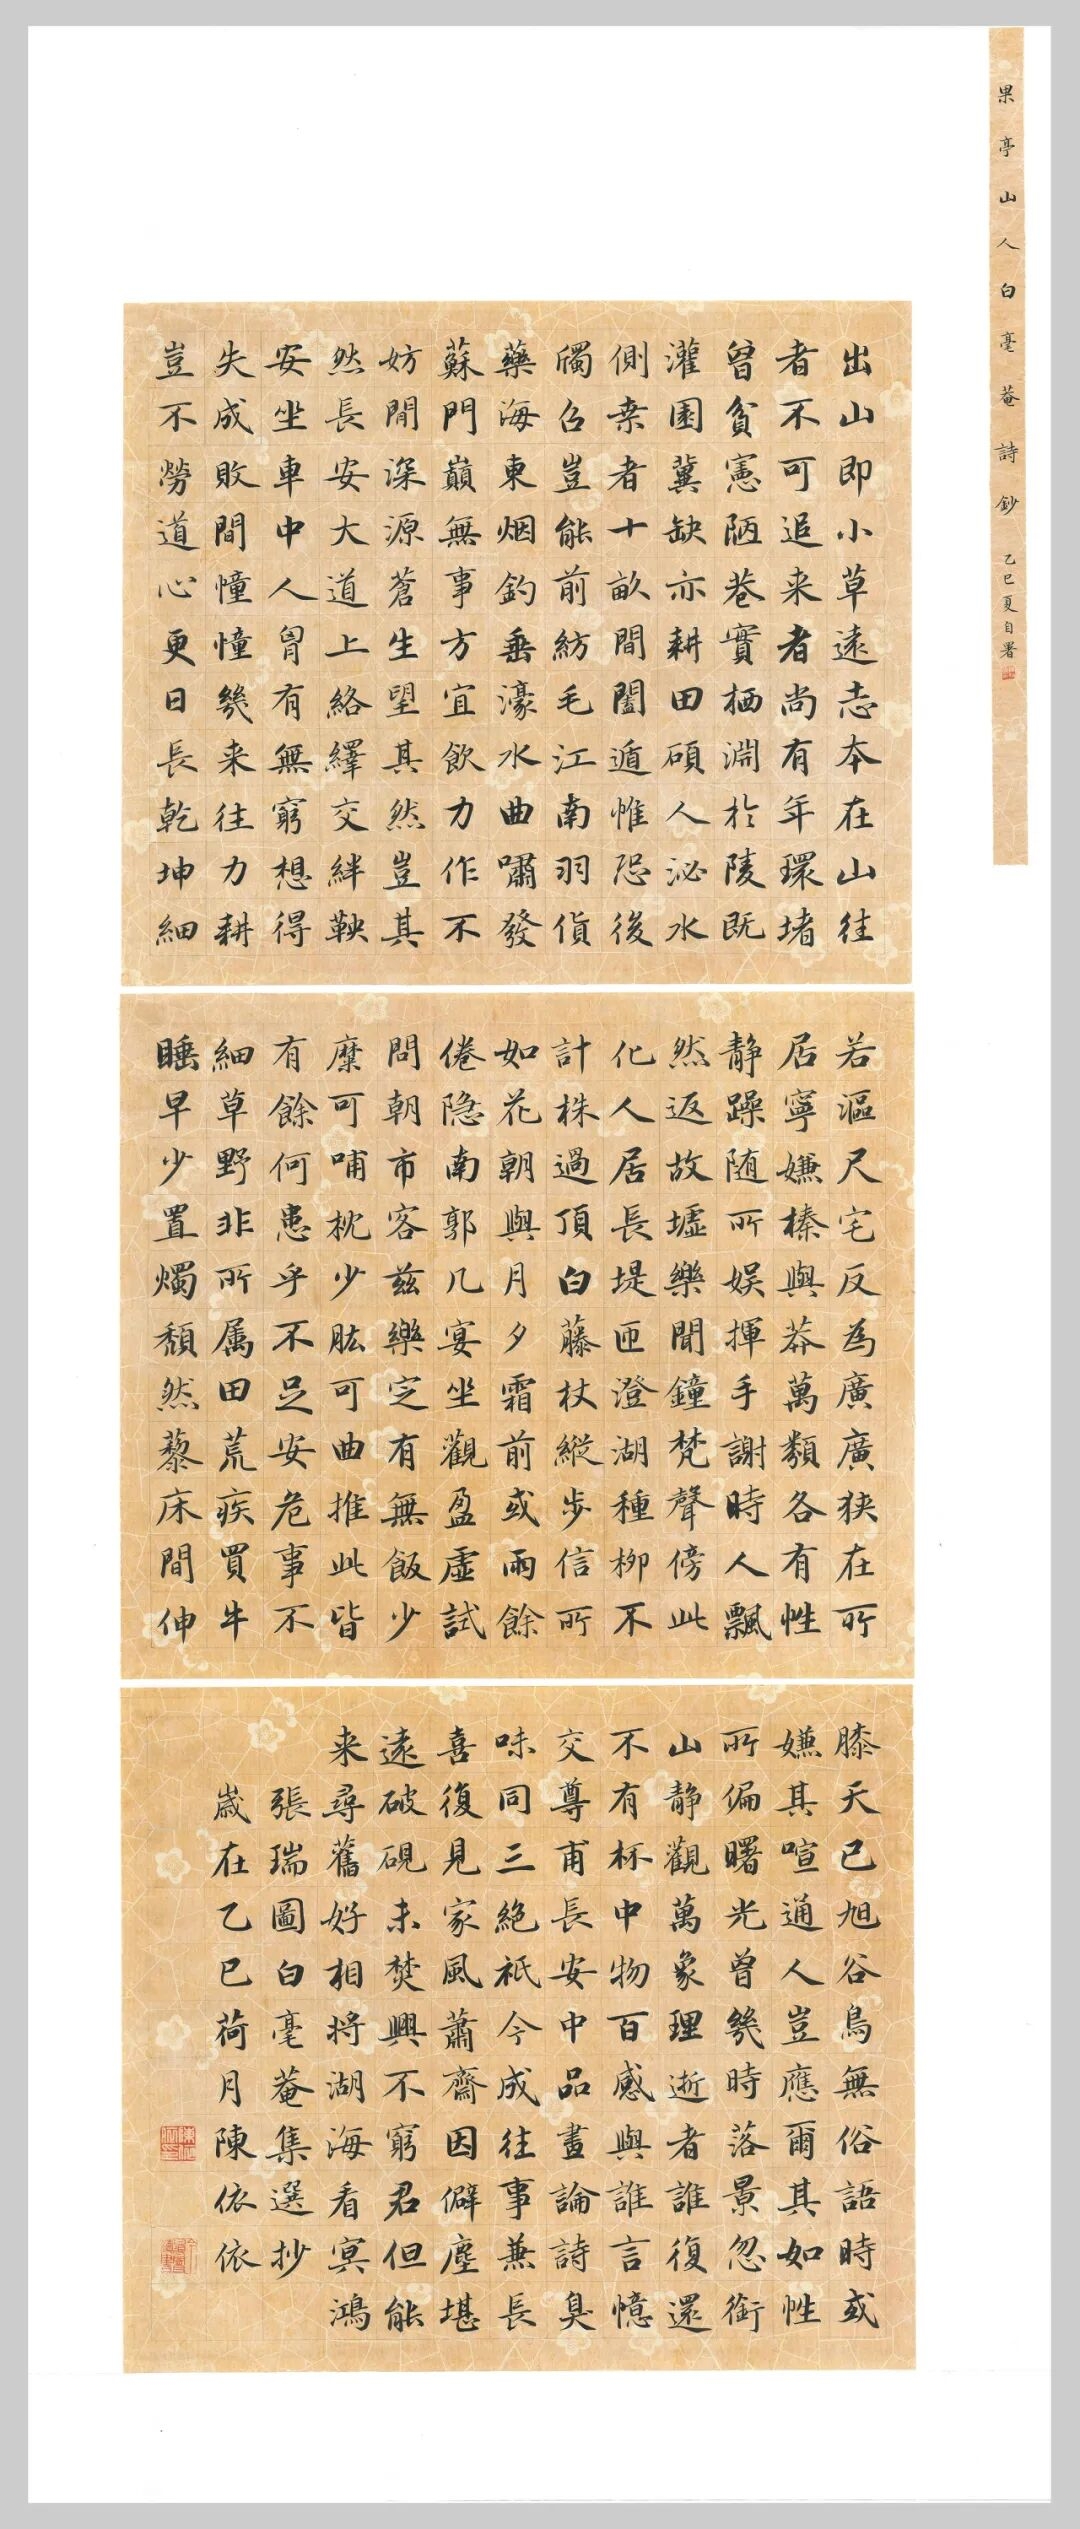 果亭山人白毫菴詩鈔 乙巳夏自署
出山即小草遠志本在山往
者不可追来者尚有年環堵
曾貧憲陋巷實栖淵於陵既
灌園冀缺亦耕田碩人泌水
側桒者十畝間闔遁惟恐後
燭召豈能前紡毛江南羽貨
藥海東烟釣垂濠水曲嘯發
蘇門巔無事方宜飲力作不
妨閒深源蒼生望其然豈其
然長安大道上絡繹交絆鞅
安坐車中人胷有無窮想得
失成敗間憧憧幾来往力耕
豈不勞道心更日長乾坤細
若漚尺宅反為廣廣狹在所
居寧嫌榛與莽萬類各有性
靜躁随所娛揮手謝時人飄
然返故墟樂聞鐘梵聲傍此
化人居長堤匝澄湖種栁不
計株過頂白藤杖縱步信所
如花朝與月夕霜前或雨餘
倦隐南郭几宴坐觀盈虛試
問朝市客兹樂定有無飯少
糜可哺枕少肱可曲推此皆
有餘何患乎不足安危事不
細草野非所属田荒疾買牛
睡早少置燭頹然藜床間伸
膝天已旭谷鳥無俗語時或
嫌其喧通人豈應爾其如性
所偏曙光曾幾時落景忽銜
山靜觀萬象理逝者誰復還
不有杯中物百感與誰言憶
交尊甫長安中品畫論詩臭
味同三絕祇今成往事蒹長
喜復見家風蕭齋因僻塵堪
遠破硯未焚興不窮君但能
来尋舊好相将湖海看冥鴻
張瑞圖白毫菴集選抄
歲在乙巳荷月陳依依